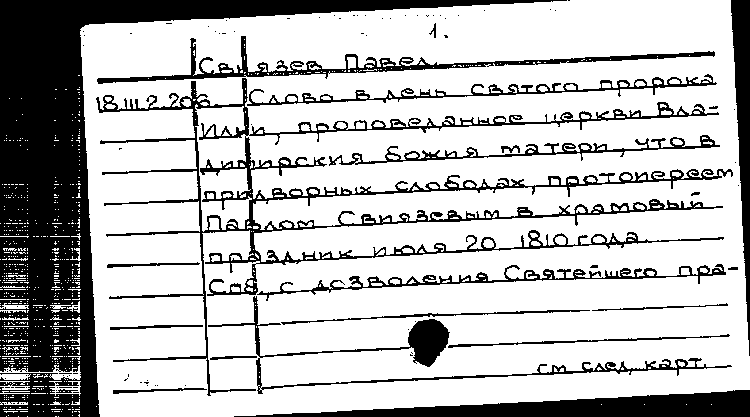 1.
Свиязев, Павел.
18.III.2.206. Слово в день святого пророка
Илии, проповеданное церкви Вла-
димирския божия матери, что в
придворных слободах, протопереем
Павлом Свиязевым в храмовый
праздник июля 20 1810 года.
Спб, с дозволения Святейшего пра-
см след. карт.